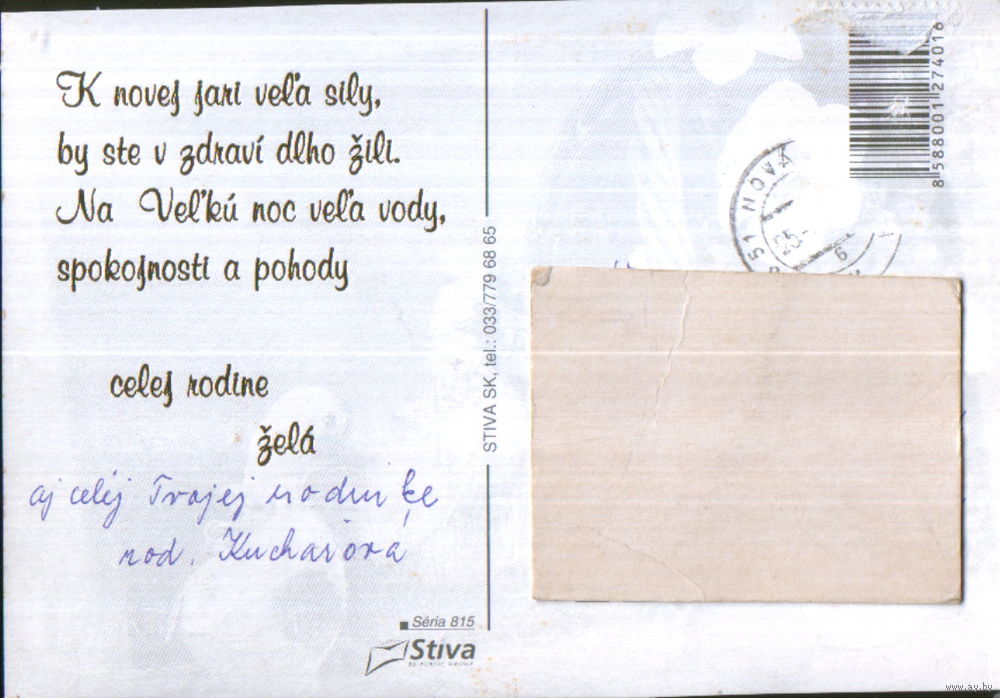 K novej jari veľa sily,
by ste v zdraví dlho žili.
Na Veľkú noc veľa vody,
spokojnosti a pohody
celej rodine
želá
aj celej Tvojej rodinke
rod. Kucharová
Séria 815
Stiva
STIVA SK, tel.: 033/779 68 65
51 NOVÁ
25.
8 588001 274016
www.ay.by